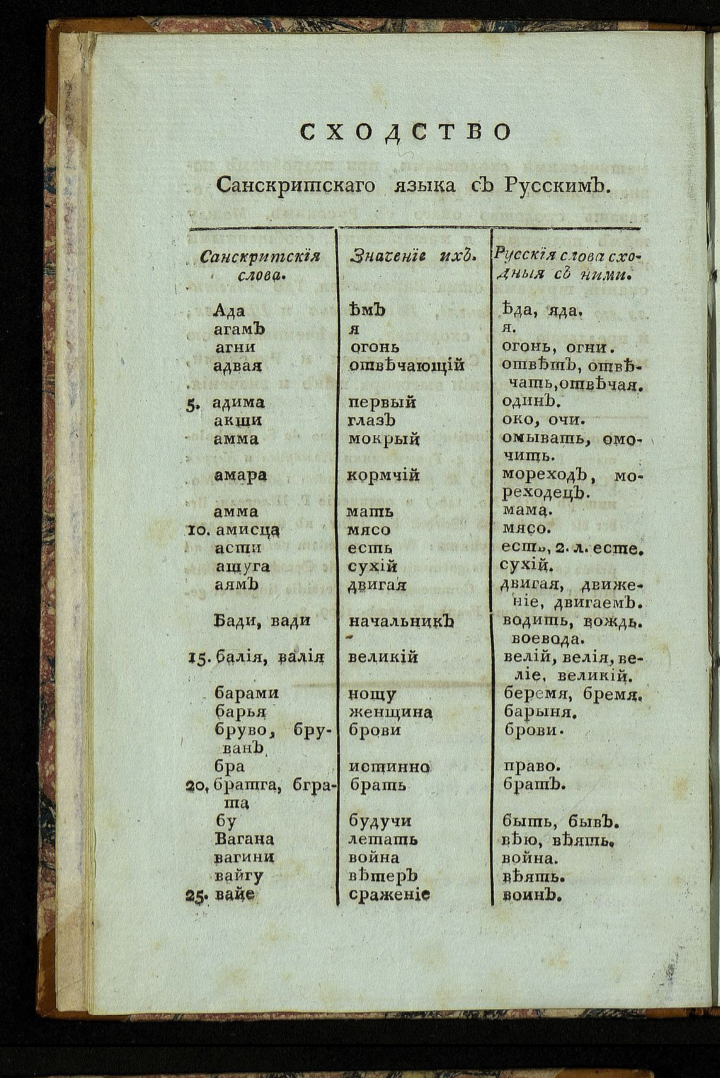 СХОДСТВО
Санскритскаго языка съ Русскимъ.
Санскритскія слова. Значеніе ихъ. Русскія слова сход-
ныя съ ними.
Ада ѣмъ ѣда, яда.
агамъ я я.
агни огонь огонь, огни.
адвая отвѣчающій отвѣтъ, отвѣ-
чать, отвѣчая.
5. адима первый одинъ.
акши глазъ око, очи.
амма мокрый омывать, омо-
чить.
амара кормчій мореходъ, мо-
реходецъ.
амма мать мама.
10. амисца мясо мясо.
асти есть есть, 2. л. есте.
ашуга сухій сухій.
аямъ двигая двигая, движе-
ніе, двигаемъ.
Бади, вади начальникъ водить, вождь.
воевода.
15. балія, валія великій велій, велія, ве-
ліе, великій.
барами ношу беремя, бремя.
барья женщина барыня.
бруво, бру- брови брови.
ванъ
бра истинно право.
20. братга, бгра- брать братъ.
та
бу будучи быть, бывъ.
Вагана летать вѣю, вѣять.
вагини война война.
вайгу вѣтеръ вѣять.
25. вайе сраженіе воинъ.